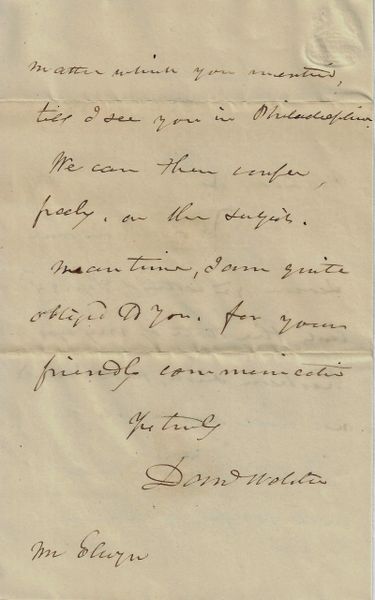 matter which you mention,
till I see you in Philadelphia.
We can then confer,
freely, on the subject.
Meantime, I am quite
obliged to you, for your
friendly communication
Yrs truly
Danl Webster
Mr Elwyn